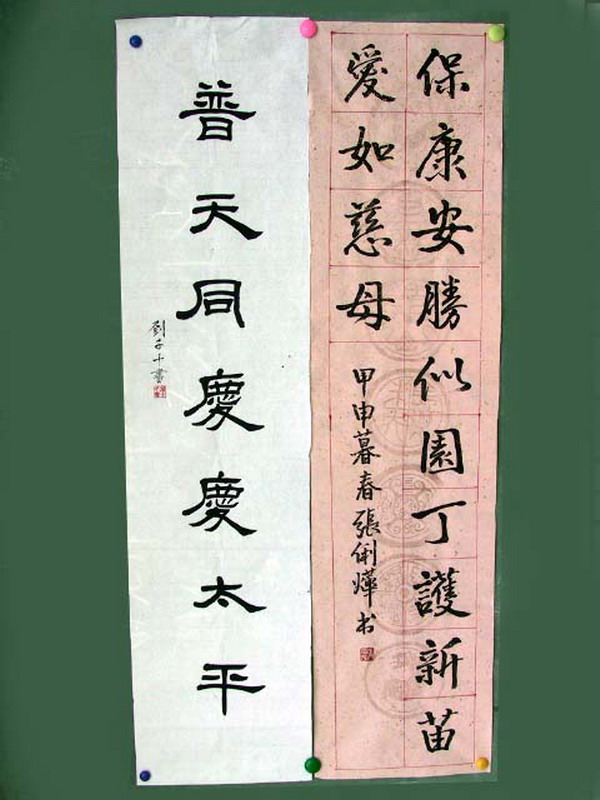 保康安勝似園丁護新苗
愛如慈母
甲申暮春張俐燁书
普天同慶慶太平
劉子十書